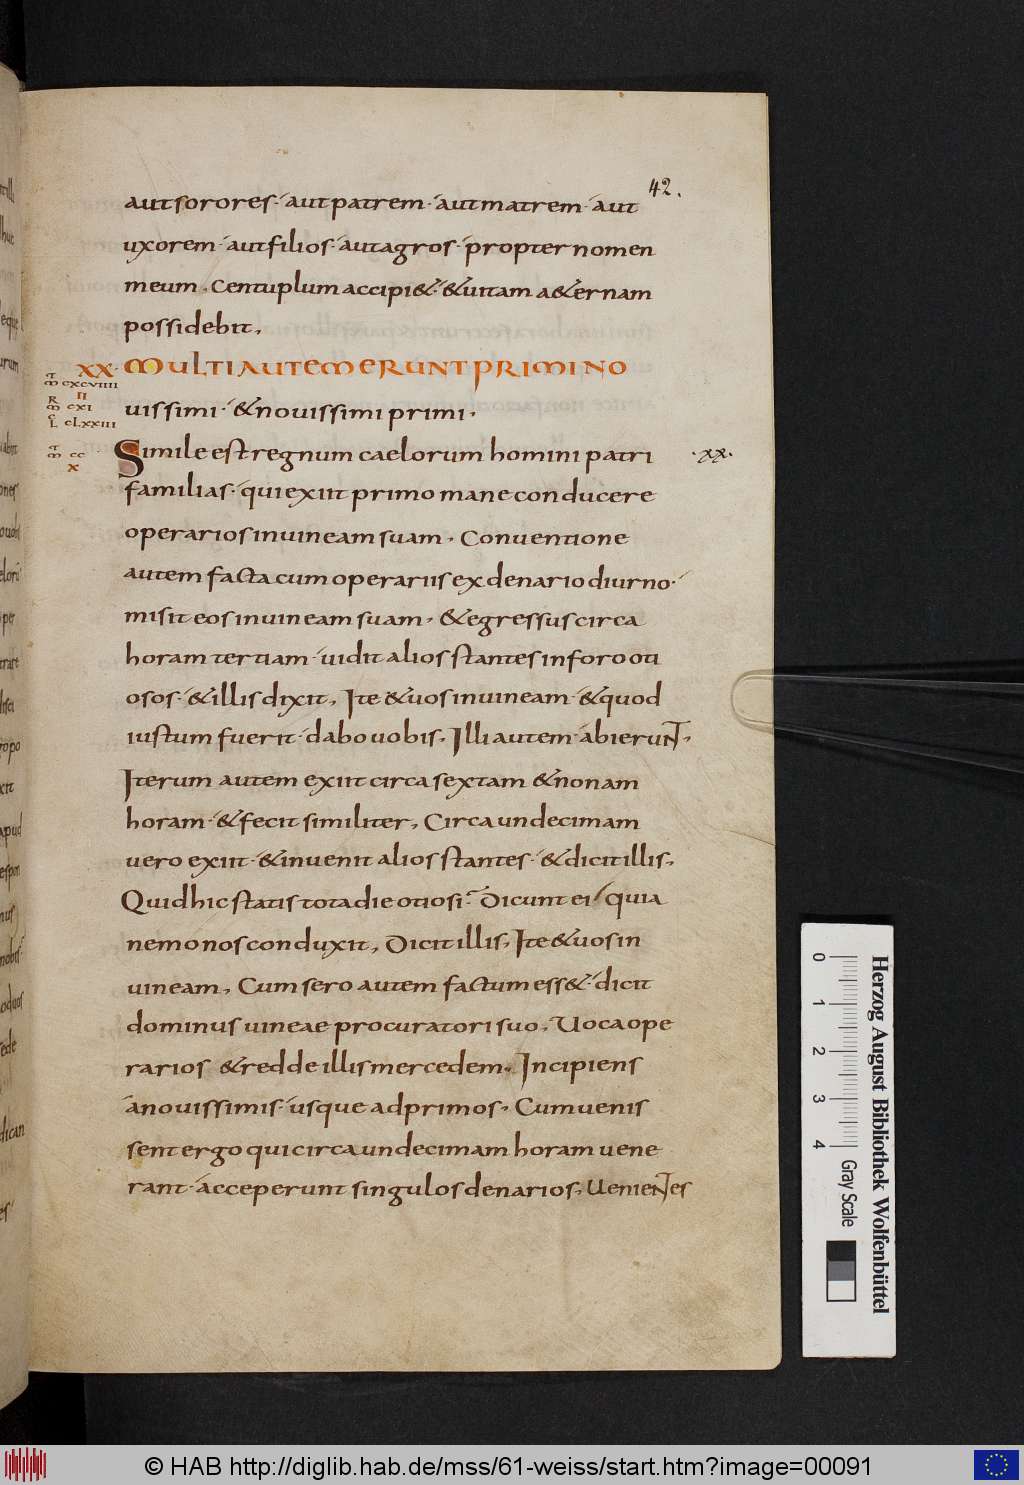 42.
aut sorores· aut patrem· aut matrem· aut
uxorem· aut filios· aut agros· propter nomen
meum. Centuplum accipi&· &uitam a&ernam
possidebit,
XX· MULTI AUTEM ERUNT PRIMI NO
m cxcuiiii
II
m cxi
L clxxiii
uissimi· &nouissimi primi,
m cc
x
Simile est regnum caelorum homini patri
·xx·
familias· qui exiit primo mane conducere
operarios in uineam suam, Conuentione
autem facta cum operariis ex denario diurno·
misit eos in uineam suam, &egressus circa
horam tertiam· uidit alios stantes in foro oti
osos· &illis dixit, Ite &uos in uineam· &quod
iustum fuerit· dabo uobis, Illi autem· abierunt,
Iterum autem exiit circa sextam &nonam
horam· &fecit similiter, Circa undecimam
uero exiit· &inuenit alios stantes· &dicit illis,
Quid hic statis tota die otiosi? Dicunt ei quia
nemo nos conduxit, Dicit illis, Ite &uos in
uineam, Cum sero autem factum ess&· dicit
dominus uineae procuratori suo, Uoca ope
rarios &redde illis mercedem, Incipiens
a nouissimis· usque ad primos, Cum uenis
sent ergo qui circa undecimam horam uene
rant· acceperunt singulos denarios, Uenientes
0 1 2 3 4
Gray Scale
Herzog August Bibliothek Wolfenbüttel
© HAB http://diglib.hab.de/mss/61-weiss/start.htm?image=00091